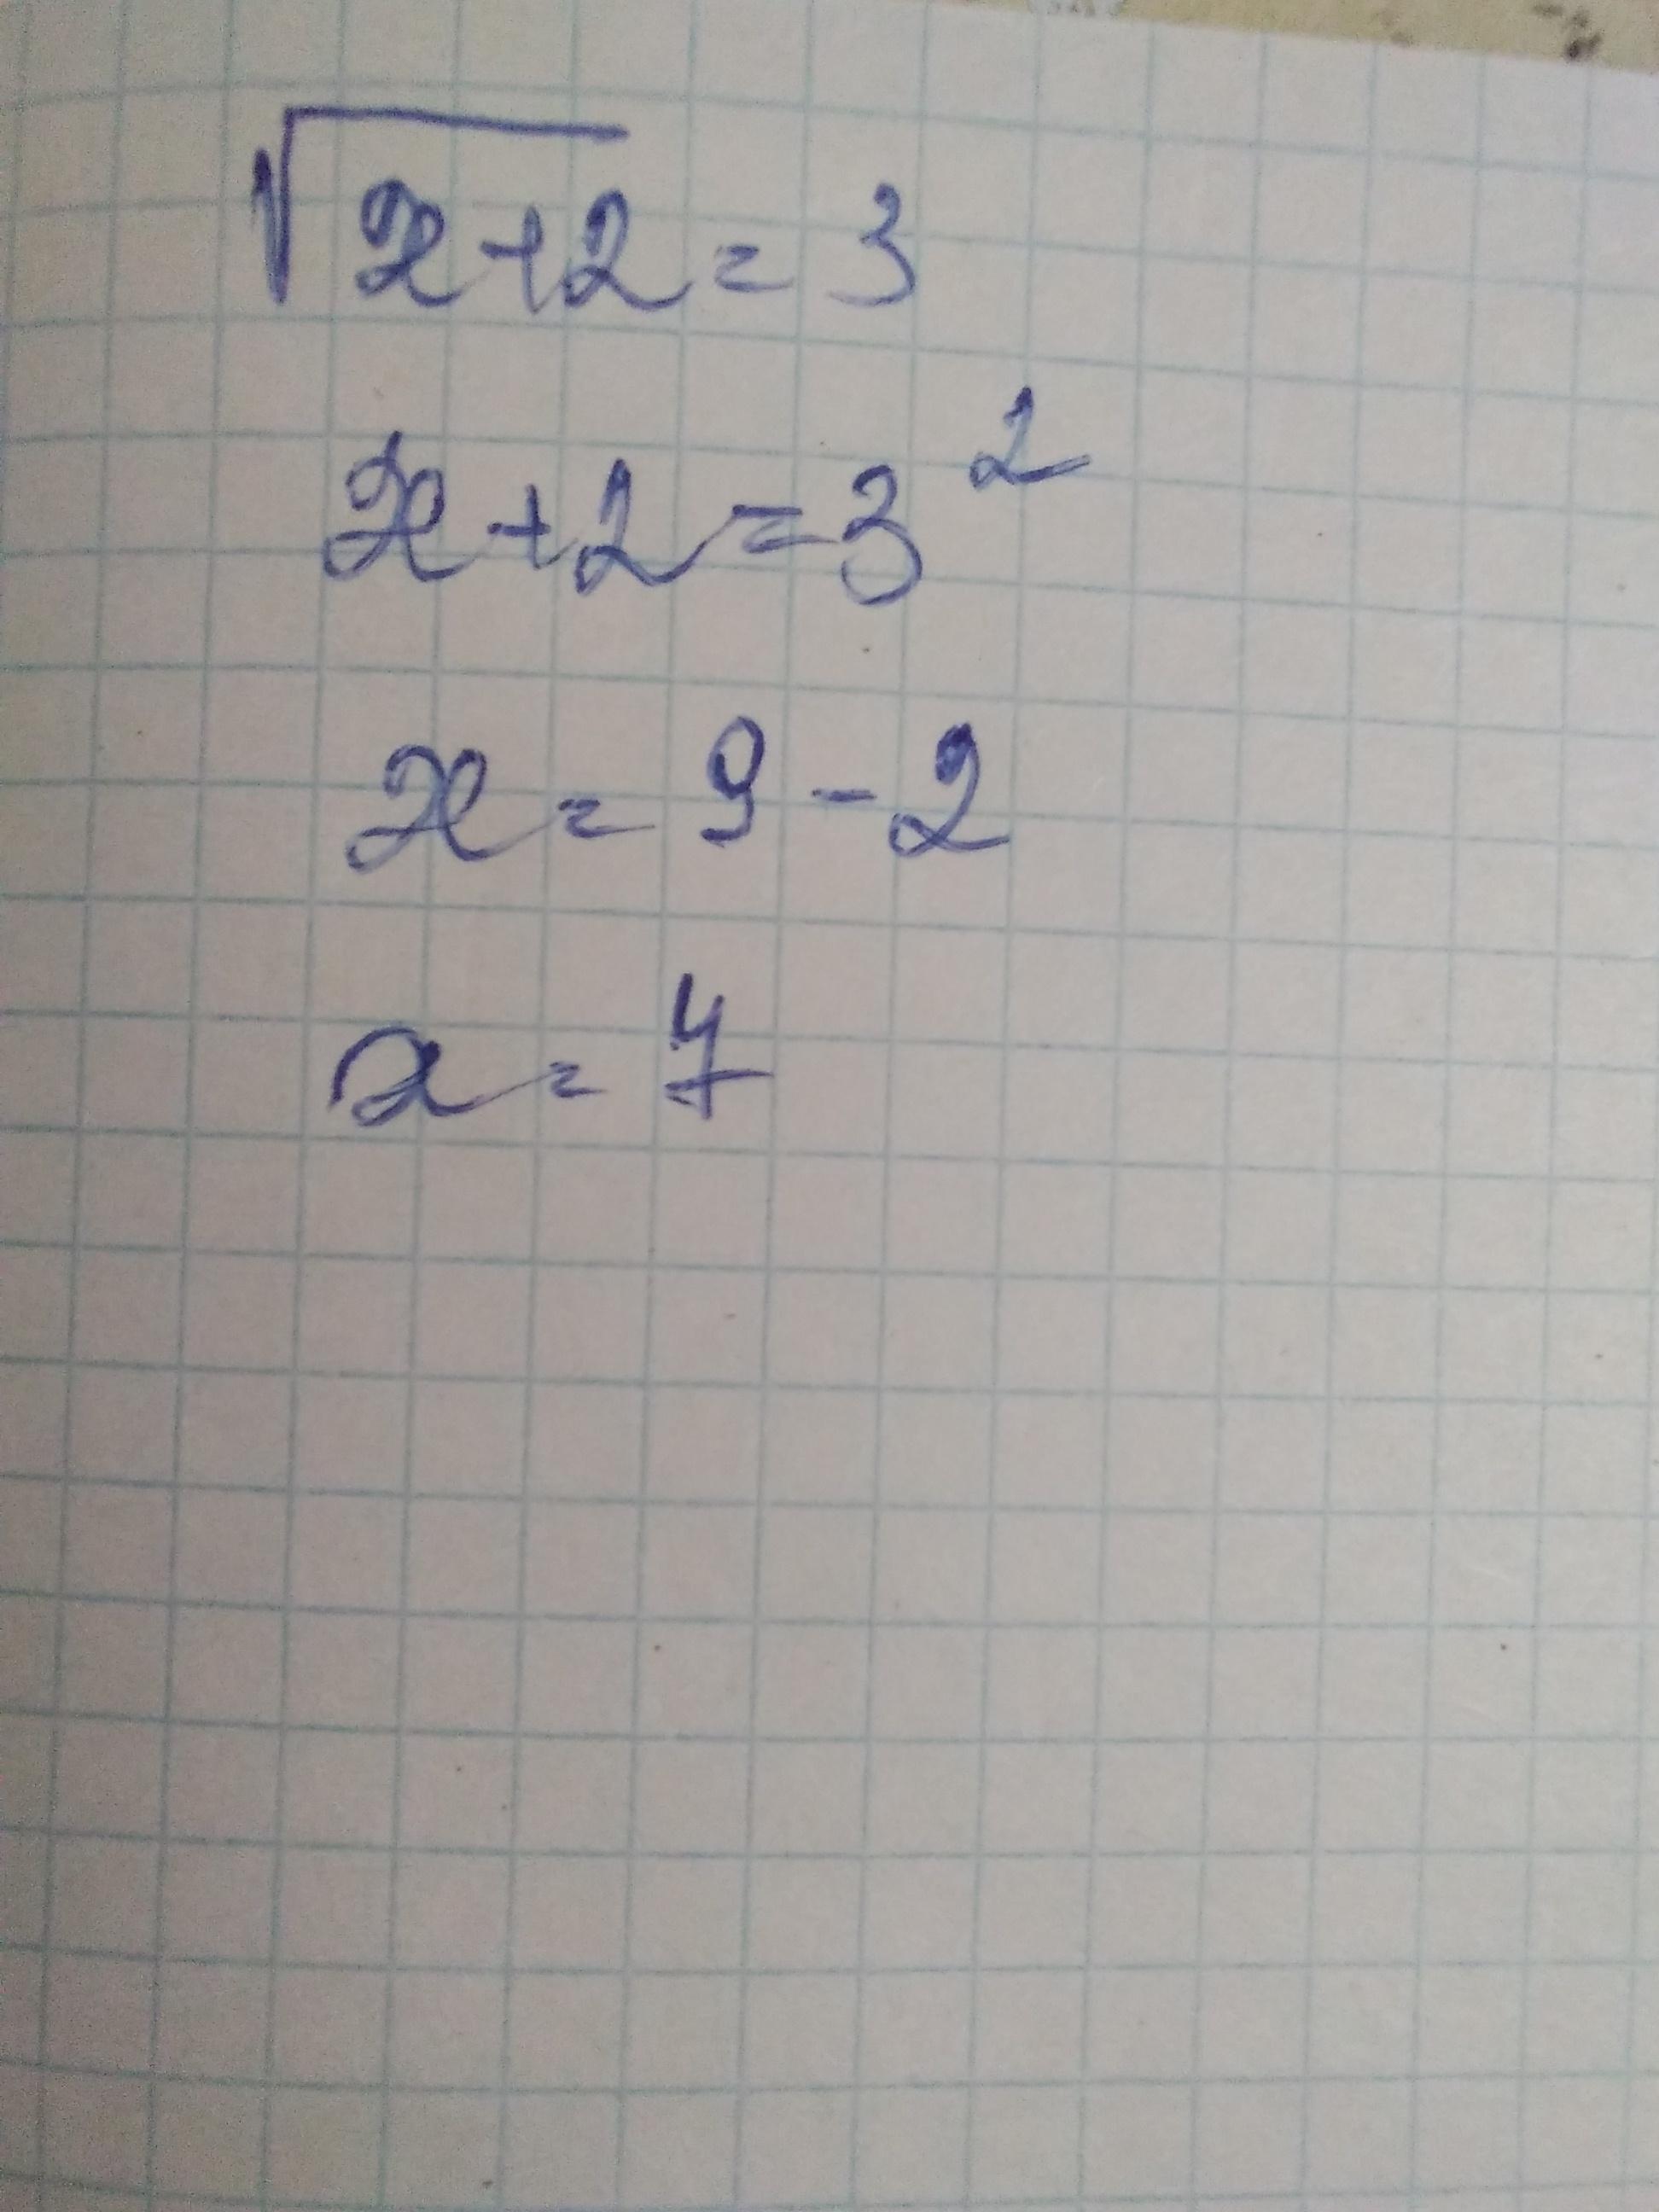 √x+2 = 3
x+2=3²
x = 9 - 2
x = 7